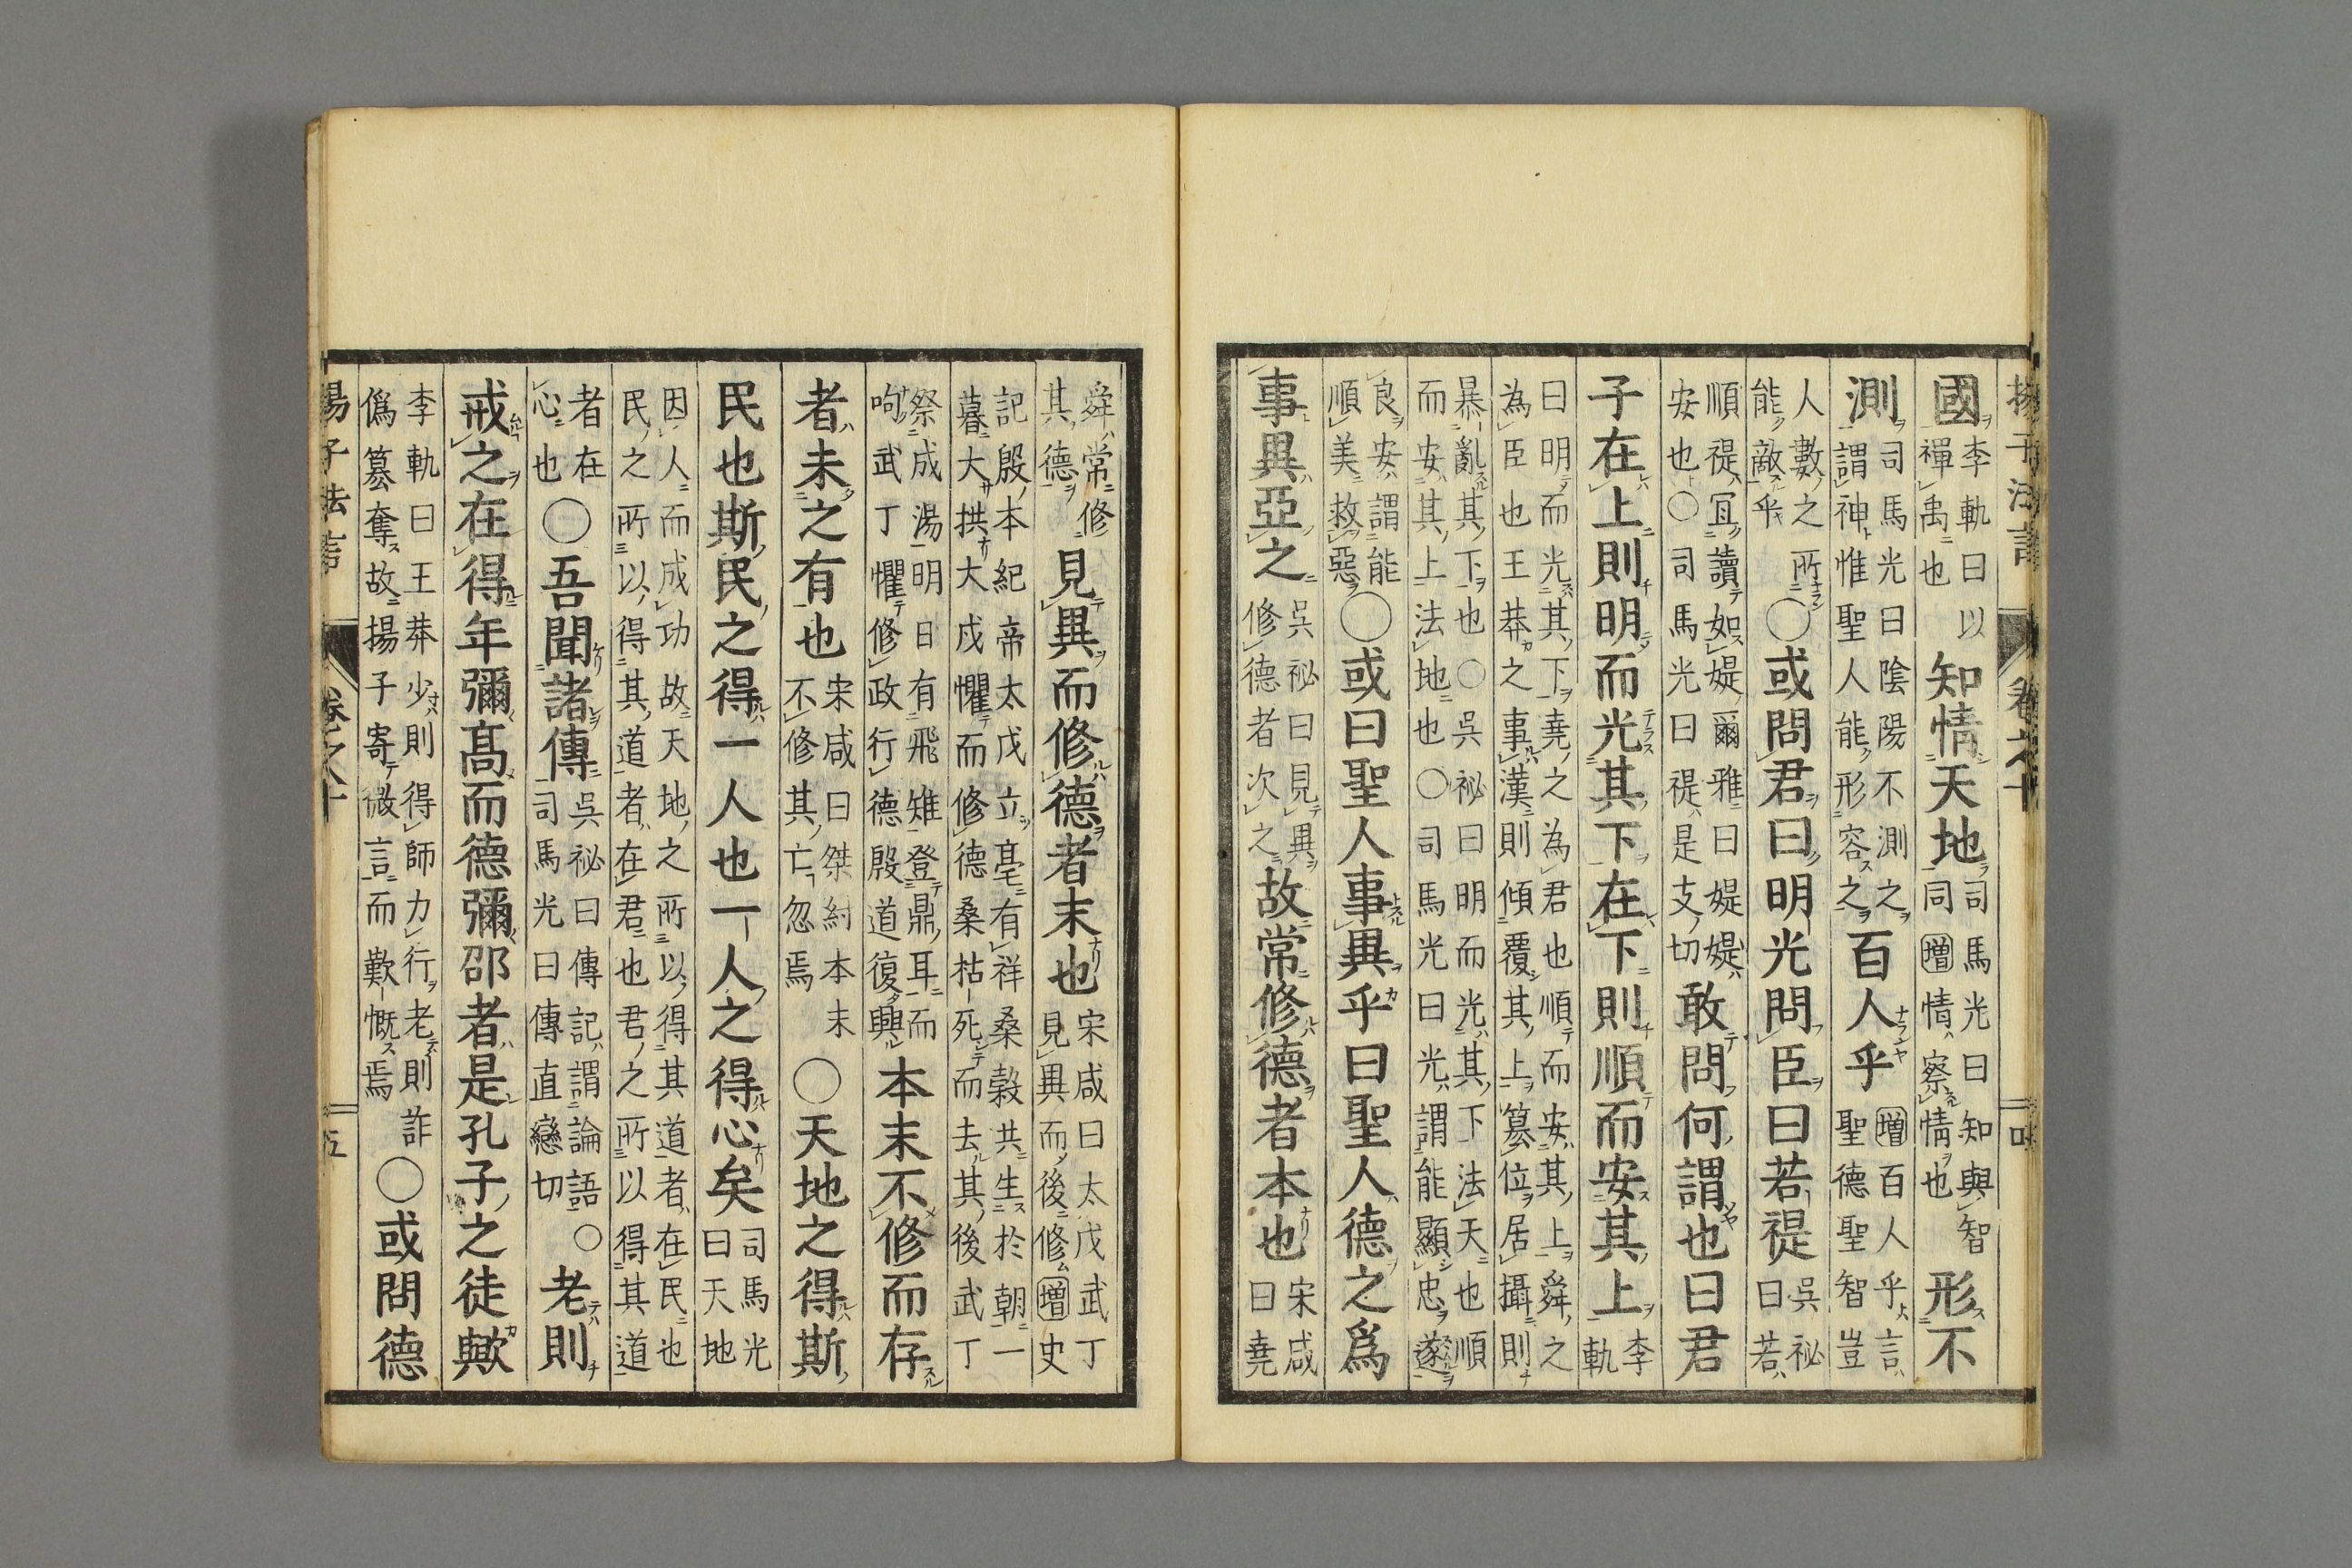 揚子法言 卷之十 四
國李軌曰以禪禹也知情天地司馬光曰知與智同增情察情也形不
測司馬光曰陰陽不測之謂神惟聖人能形容之百人乎增百人乎言聖德聖智豈
人數之所能敵乎○或問君曰明光問臣曰若禔吳祕曰若
順禔冝讀如媞爾雅曰媞媞安也○司馬光曰禔是支切敢問何謂也曰君
子在上則明而光其下在下則順而安其上李軌
曰明而光其下堯之為君也順而安其上舜之
為臣也王莽之事漢則傾覆其上篡位居攝則
暴亂其下也○吳祕曰明而光其下法天也順
而安其上法地也○司馬光曰光謂能顯忠遂
良安謂能順美救惡○或曰聖人事異乎曰聖人德之爲
事異亞之吳祕曰見異修德者次之故常修德者本也宋咸曰堯
舜常修其德見異而修德者末也宋咸曰太戊武丁見異而後修增史
記殷本紀帝太戊立亳有祥桑榖共生於朝一
暮大拱大戊懼而修德桑枯死而去其後武丁
祭成湯明日有飛雉登鼎耳而呴武丁懼修政行德殷道復興本末不修而存
者未之有也宋咸曰桀紂本末不修其亡忽焉○天地之得斯
民也斯民之得一人也一人之得心矣司馬光曰天地
因人而成功故天地之所以得其道者在民也
民之所以得其道者在君也君之所以得其道
者在心也○吾聞諸傳吳祕曰傳記謂論語○司馬光曰傳直戀切老則
戒之在得年彌高而德彌邵者是孔子之徒歟
李軌曰王莽少則得師力行老則詐僞篡奪故揚子寄微言而歎慨焉○或問德
揚子法言 卷之十 五